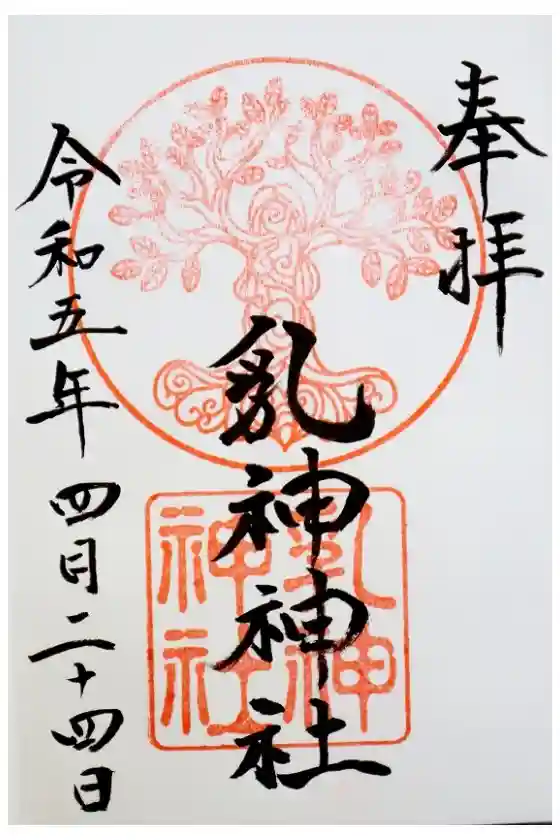 奉拝
乳神神社
令和五年 四月二十四日
乳神
神社